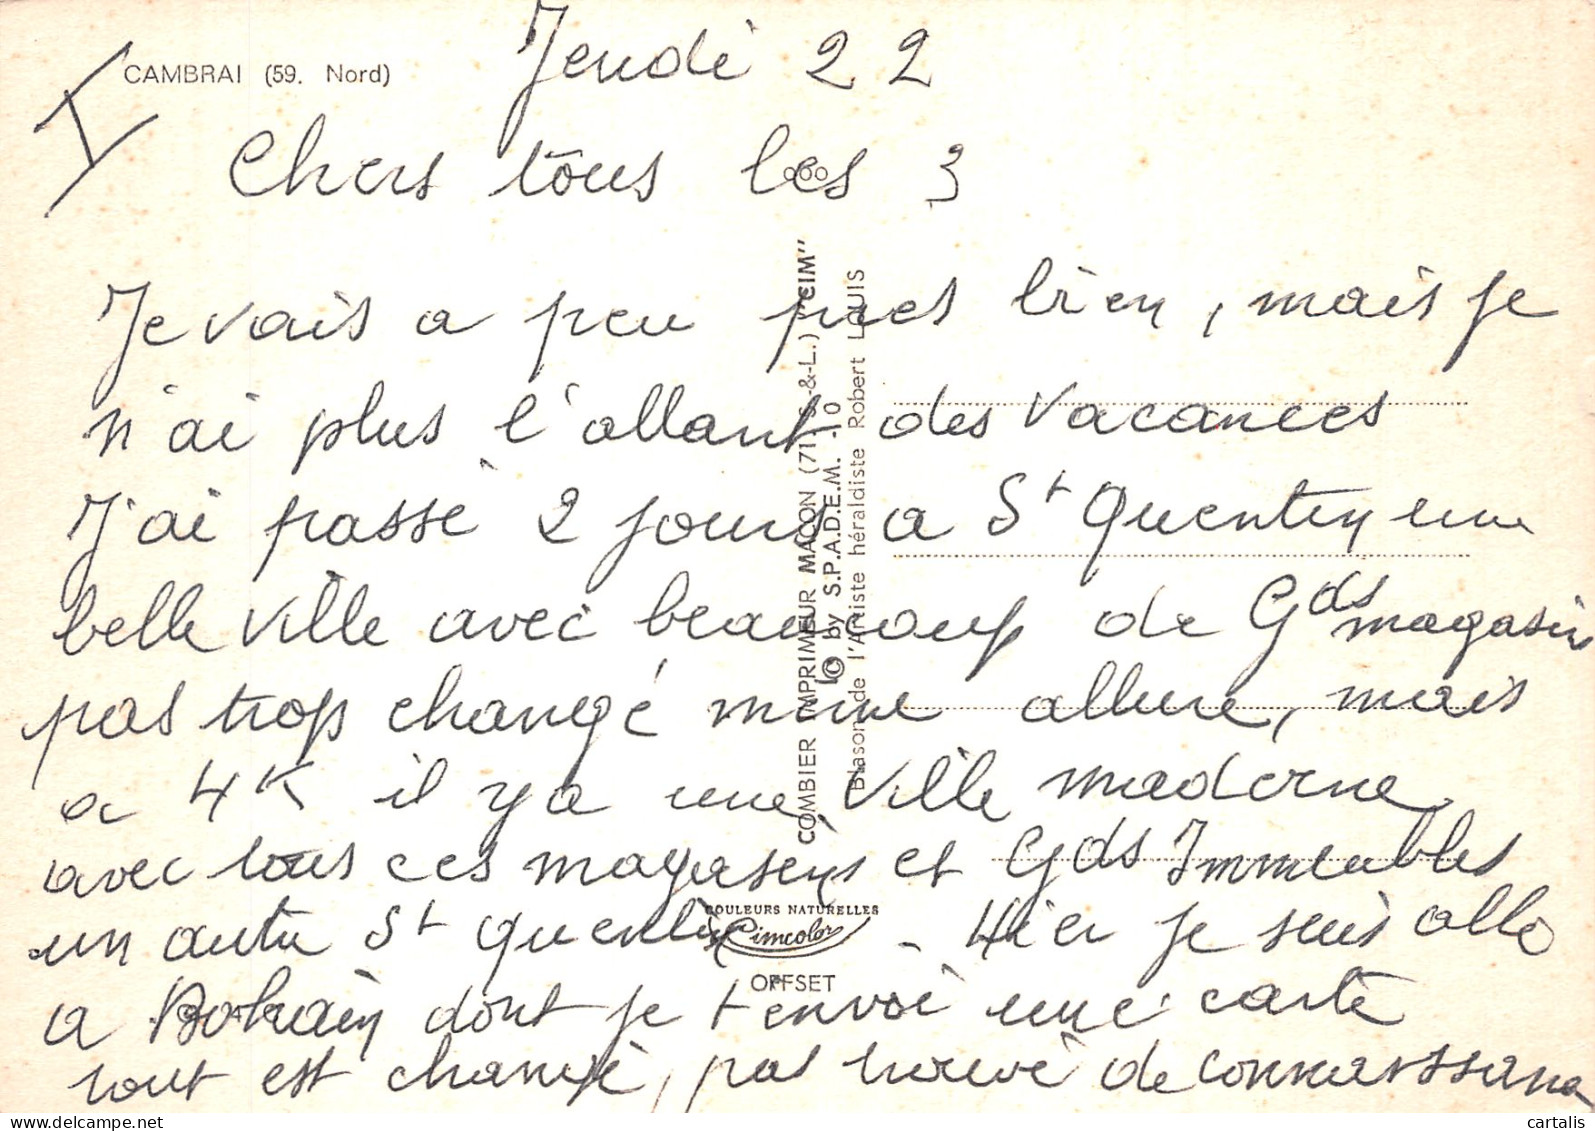 CAMBRAI (59. Nord)
Jeudi 22
Chers tous les 3
Je vais a peu pres bien, mais je
n'ai plus l'allant des vacances
J'ai passé 2 jours a St Quentin une
belle ville avec beaucoup de Gds magasin
pas trop changé même allure, mais
a 4K il y a une ville moderne
avec tous ces magasins et Gds Immeubles
un autre St Quentin - Hier je suis allé
a Bohain dont je t envoi une carte
tout est changé, pas trouvé de connaissance
COMBIER IMPRIMEUR MACON (71. S.-&-L.) "CIM"
© by S.P.A.D.E.M. -10
Blason de l'Artiste héraldiste Robert LOUIS
COULEURS NATURELLES
Cimcolor
OFFSET
cartalis
www.delcampe.net